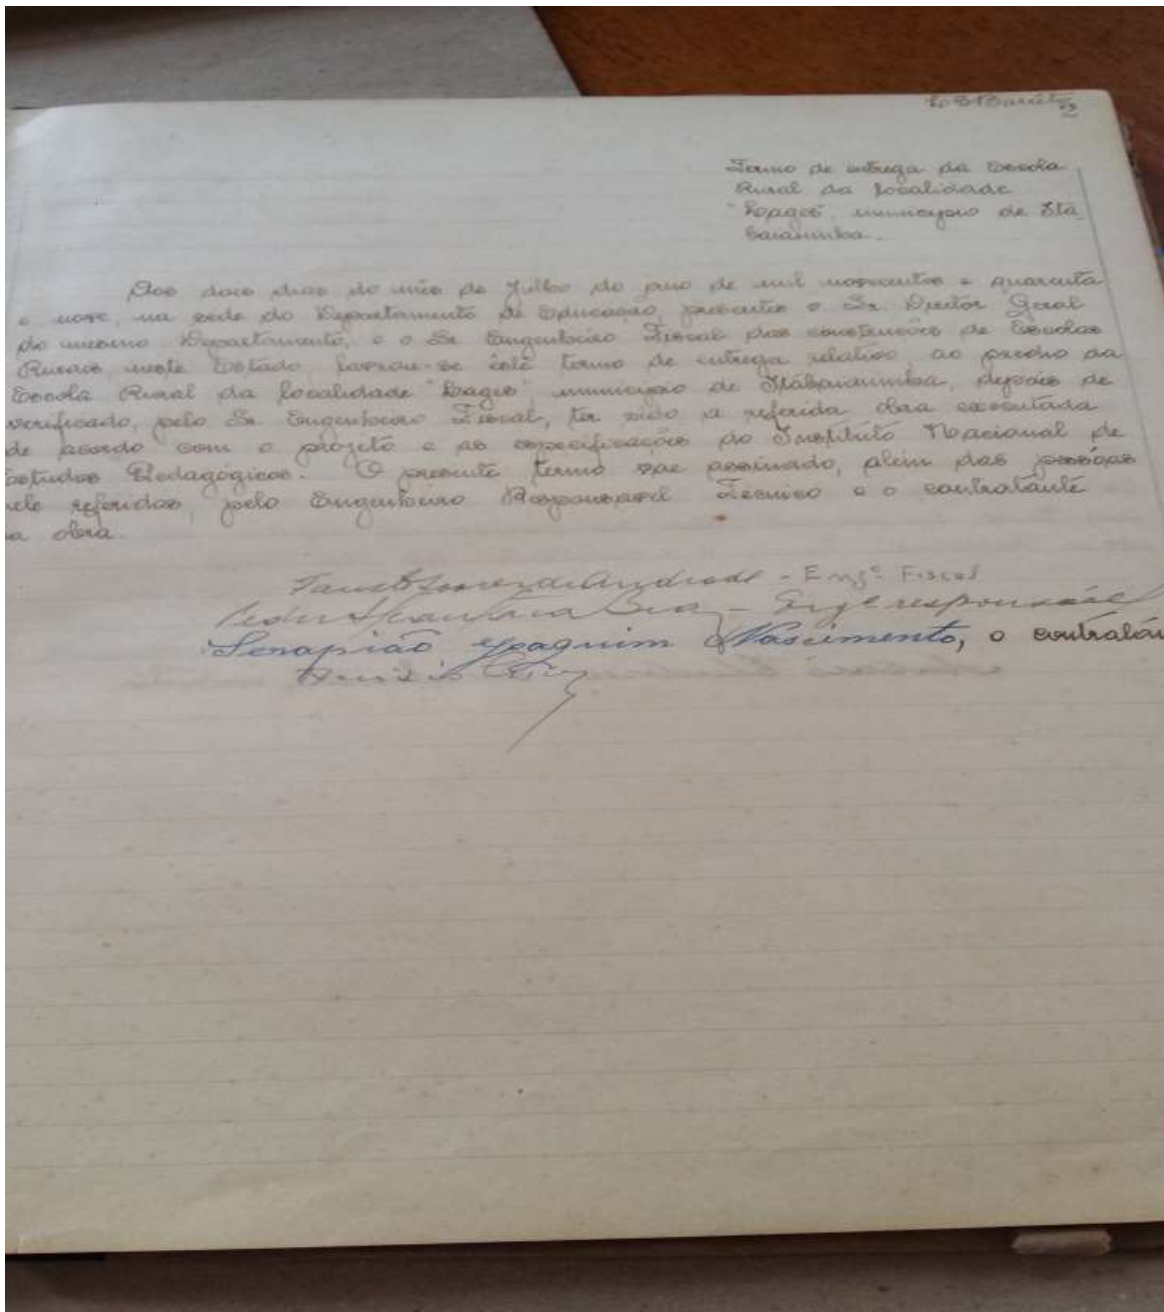 2
Termo de entrega da Escola
Rural da localidade
"Lages", município de Ita
baianinha.
Aos doze dias do mês de Julho do ano de mil novecentos e quarenta
e nove, na sede do Departamento de Educação, presentes o Sr. Diretor Geral
do mesmo Departamento, e o Sr. Engenheiro Fiscal das construções de Escolas
Rurais, neste Estado, lavrou-se êste termo de entrega relativo ao prédio da
Escola Rural da localidade "Lages" município de Itabaianinha, depois de
verificado, pelo Sr. Engenheiro Fiscal, ter sido a referida obra executada
de acordo com o projéto e as especificações do Instituto Nacional de
Estudos Pedagógicos. O presente termo vae assinado, além das pessôas
nele referidas, pelo Engenheiro Responsavel Tecnico e o contratante
a obra.
de Andrade - Engº Fiscal
- Engº responsável
Serapião Joaquim Nascimento, o contratan